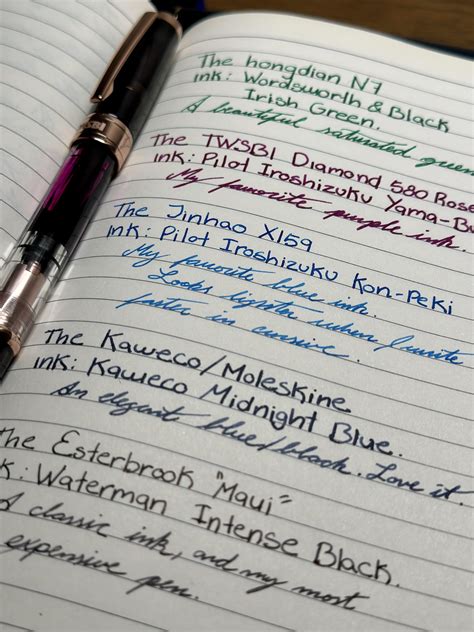 The hongdian N7
ink: Wordsworth & Black
Irish Green.
A beautiful saturated green
The TWSBI Diamond 580 Rose
ink: Pilot Iroshizuku Yama-Bu
My favorite purple ink.
The Jinhao X159
ink: Pilot Iroshizuku Kon-Peki
My favorite blue ink.
Looks lighter when I write
faster in cursive.
The Kaweco/Moleskine
ink: Kaweco Midnight Blue.
An elegant blue/black. Love it.
The Esterbrook "Maui"
k: Waterman Intense Black.
A classic ink, and my most
expensive pen.